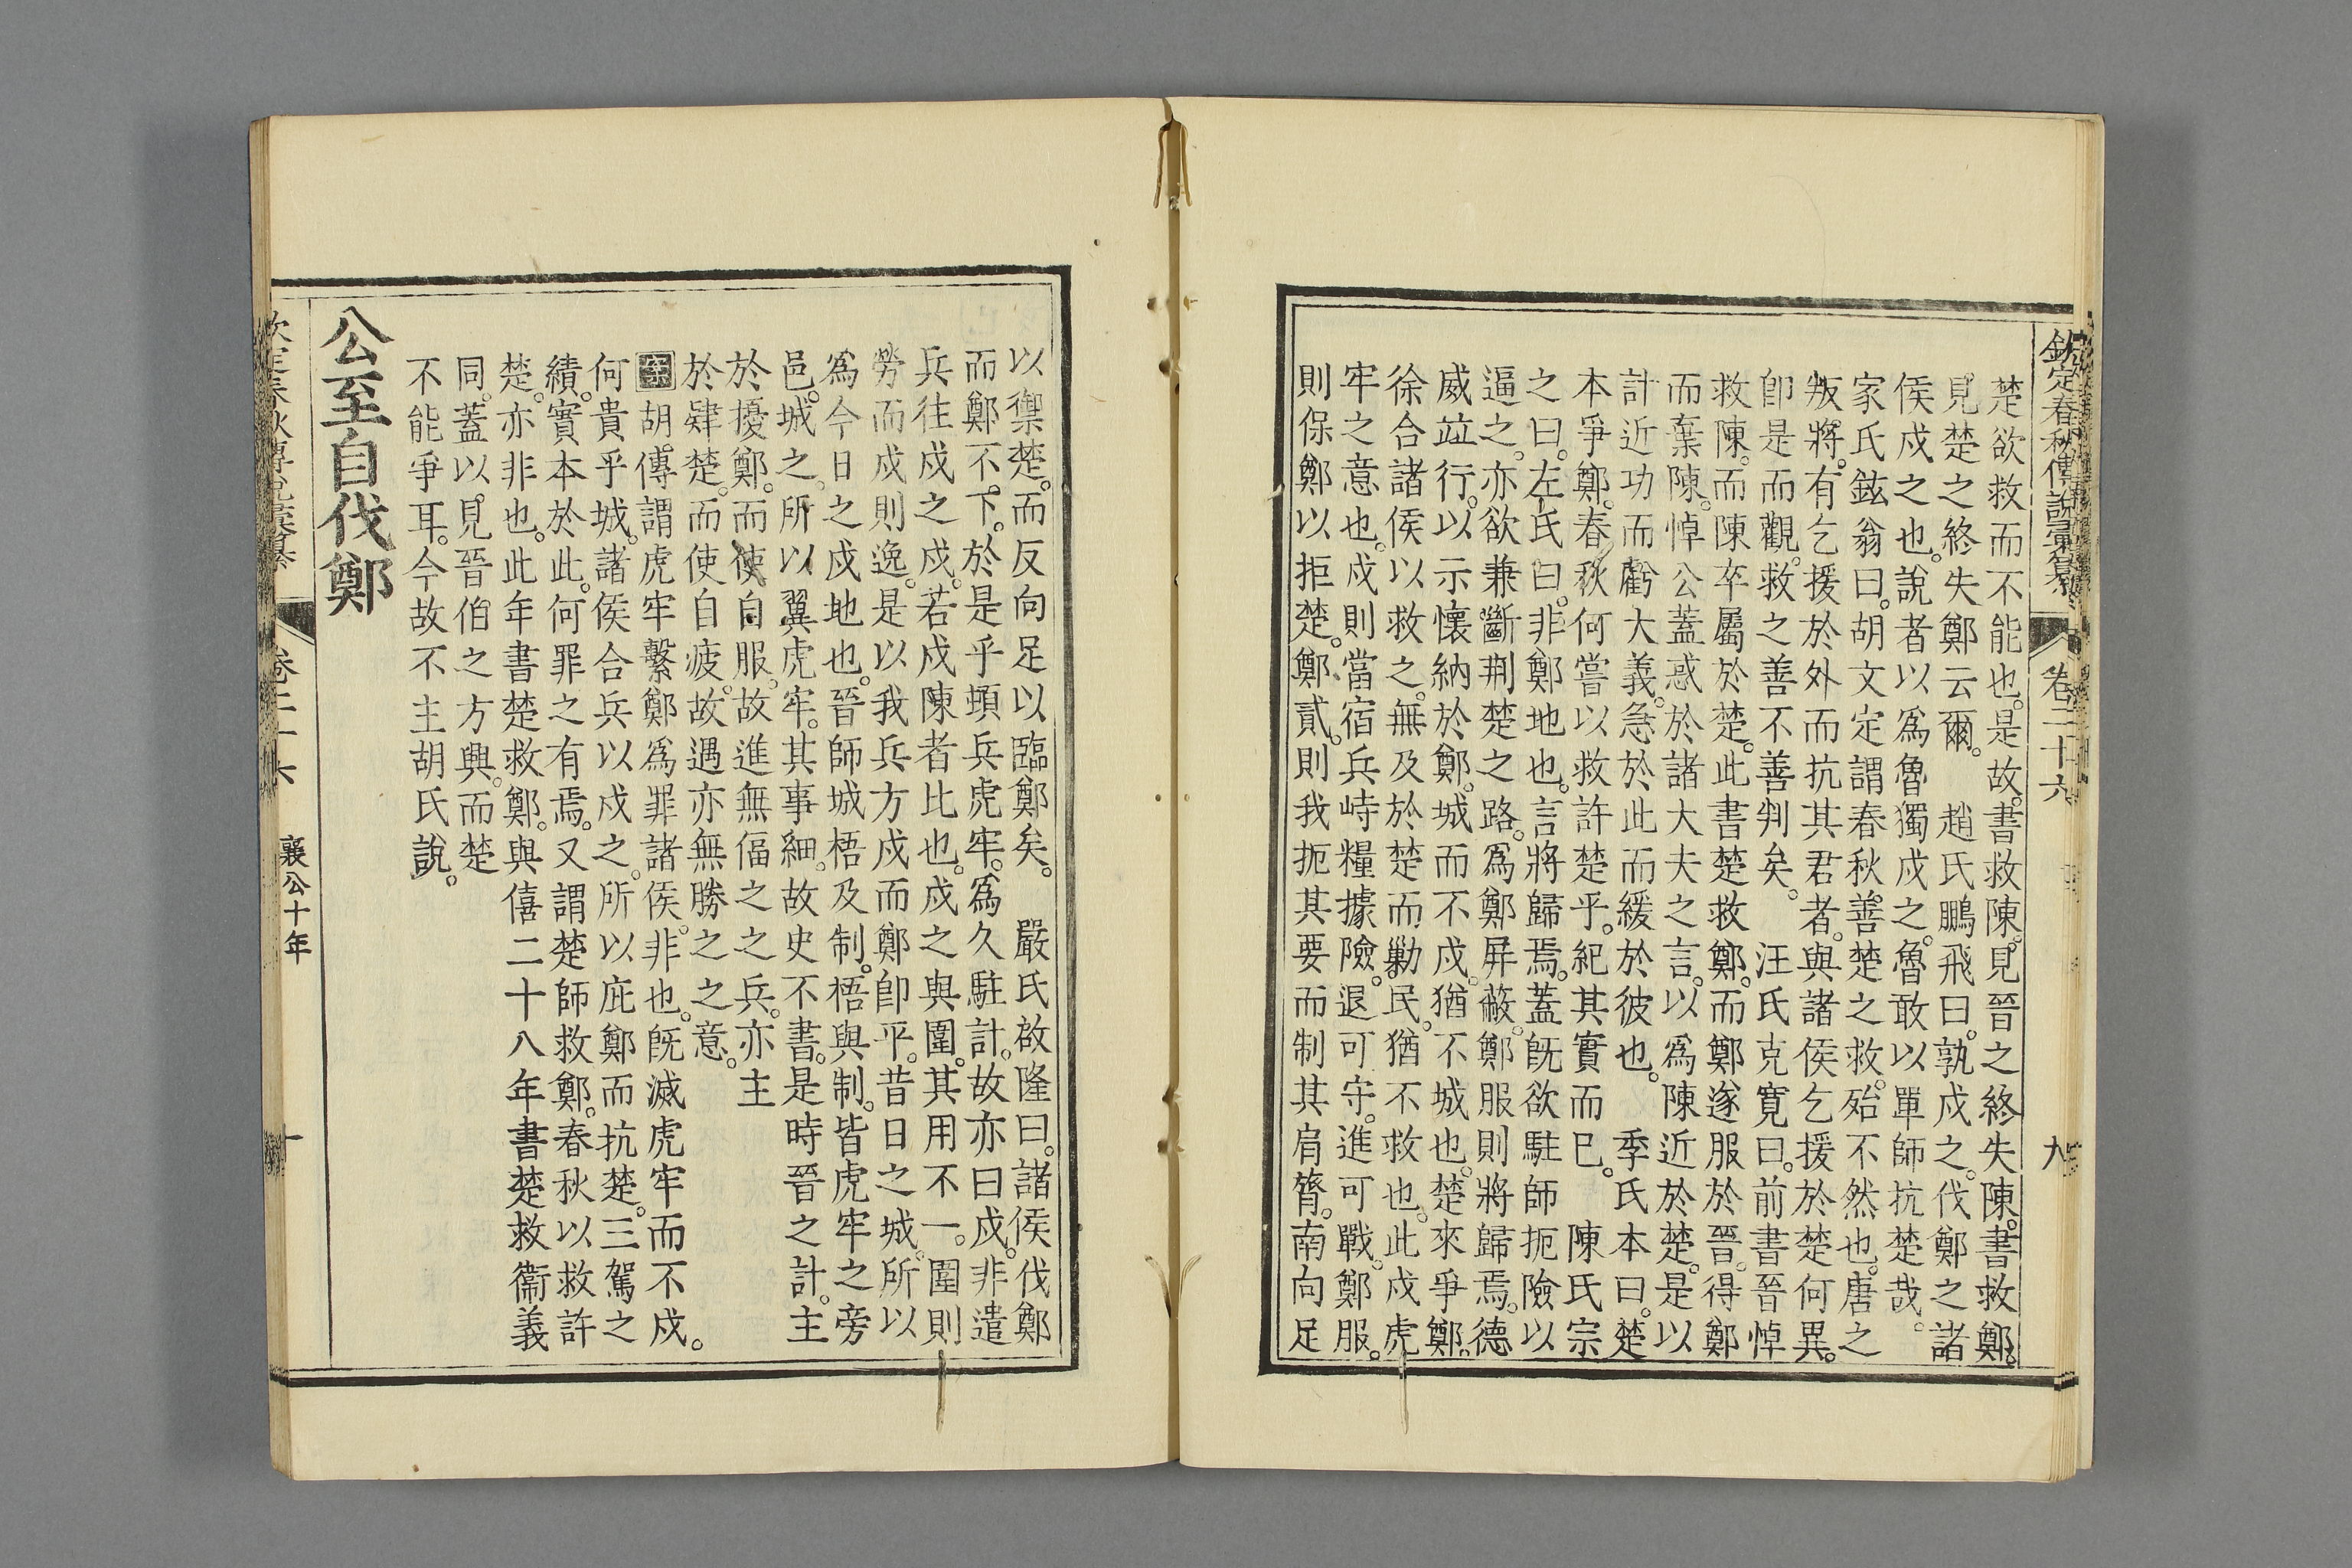 欽定春秋傳說彙纂
卷二十六
九
楚欲救而不能也。是故書救陳。見晉之終失陳。書救鄭。
見楚之終失鄭云爾。 趙氏鵬飛曰。孰戍之。伐鄭之諸
侯戍之也。說者以爲魯獨戍之。魯敢以單師抗楚哉。
家氏鉉翁曰。胡文定謂春秋善楚之救。殆不然也。唐之
叛將。有乞援於外而抗其君者。與諸侯乞援於楚何異。
卽是而觀。救之善不善判矣。 汪氏克寬曰。前書晉悼
救陳。而陳卒屬於楚。此書楚救鄭。而鄭遂服於晉。得鄭
而棄陳。悼公蓋惑於諸大夫之言。以爲陳近於楚。是以
計近功而虧大義。急於此而緩於彼也。 季氏本曰。楚
本爭鄭。春秋何嘗以救許楚乎。紀其實而已。 陳氏宗
之曰。左氏曰。非鄭地也。言將歸焉。蓋旣欲駐師扼險以
逼之。亦欲兼斷荆楚之路。爲鄭屏蔽。鄭服則將歸焉。德
威竝行。以示懷納於鄭。城而不戍。猶不城也。楚來爭鄭。
徐合諸侯以救之。無及於楚而勦民。猶不救也。此戍虎
牢之意也。戍則當宿兵峙糧據險。退可守。進可戰。鄭服。
則保鄭以拒楚。鄭貳。則我扼其要而制其肩膂。南向足
以禦楚。而反向足以臨鄭矣。 嚴氏啟隆曰。諸侯伐鄭
而鄭不下。於是乎頓兵虎牢。爲久駐計。故亦曰戍。非遣
兵往戍之戍。若戍陳者比也。戍之與圍。其用不一。圍則
勞而戍則逸。是以我兵方戍而鄭卽平。昔日之城。所以
爲今日之戍地也。晉師城梧及制。梧與制。皆虎牢之旁
邑。城之。所以翼虎牢。其事細。故史不書。是時晉之計。主
於擾鄭。而使自服。故進無偪之之兵。亦主
於肄楚。而使自疲。故遇亦無勝之之意。
案胡傳謂虎牢繫鄭爲罪諸侯。非也。旣滅虎牢而不戍。
何貴乎城。諸侯合兵以戍之。所以庇鄭而抗楚。三駕之
績。實本於此。何罪之有焉。又謂楚師救鄭。春秋以救許
楚。亦非也。此年書楚救鄭。與僖二十八年書楚救衞義
同。蓋以見晉伯之方興。而楚
不能爭耳。今故不主胡氏說。
公至自伐鄭
欽定春秋傳說彙纂
卷二十六
襄公十年
十